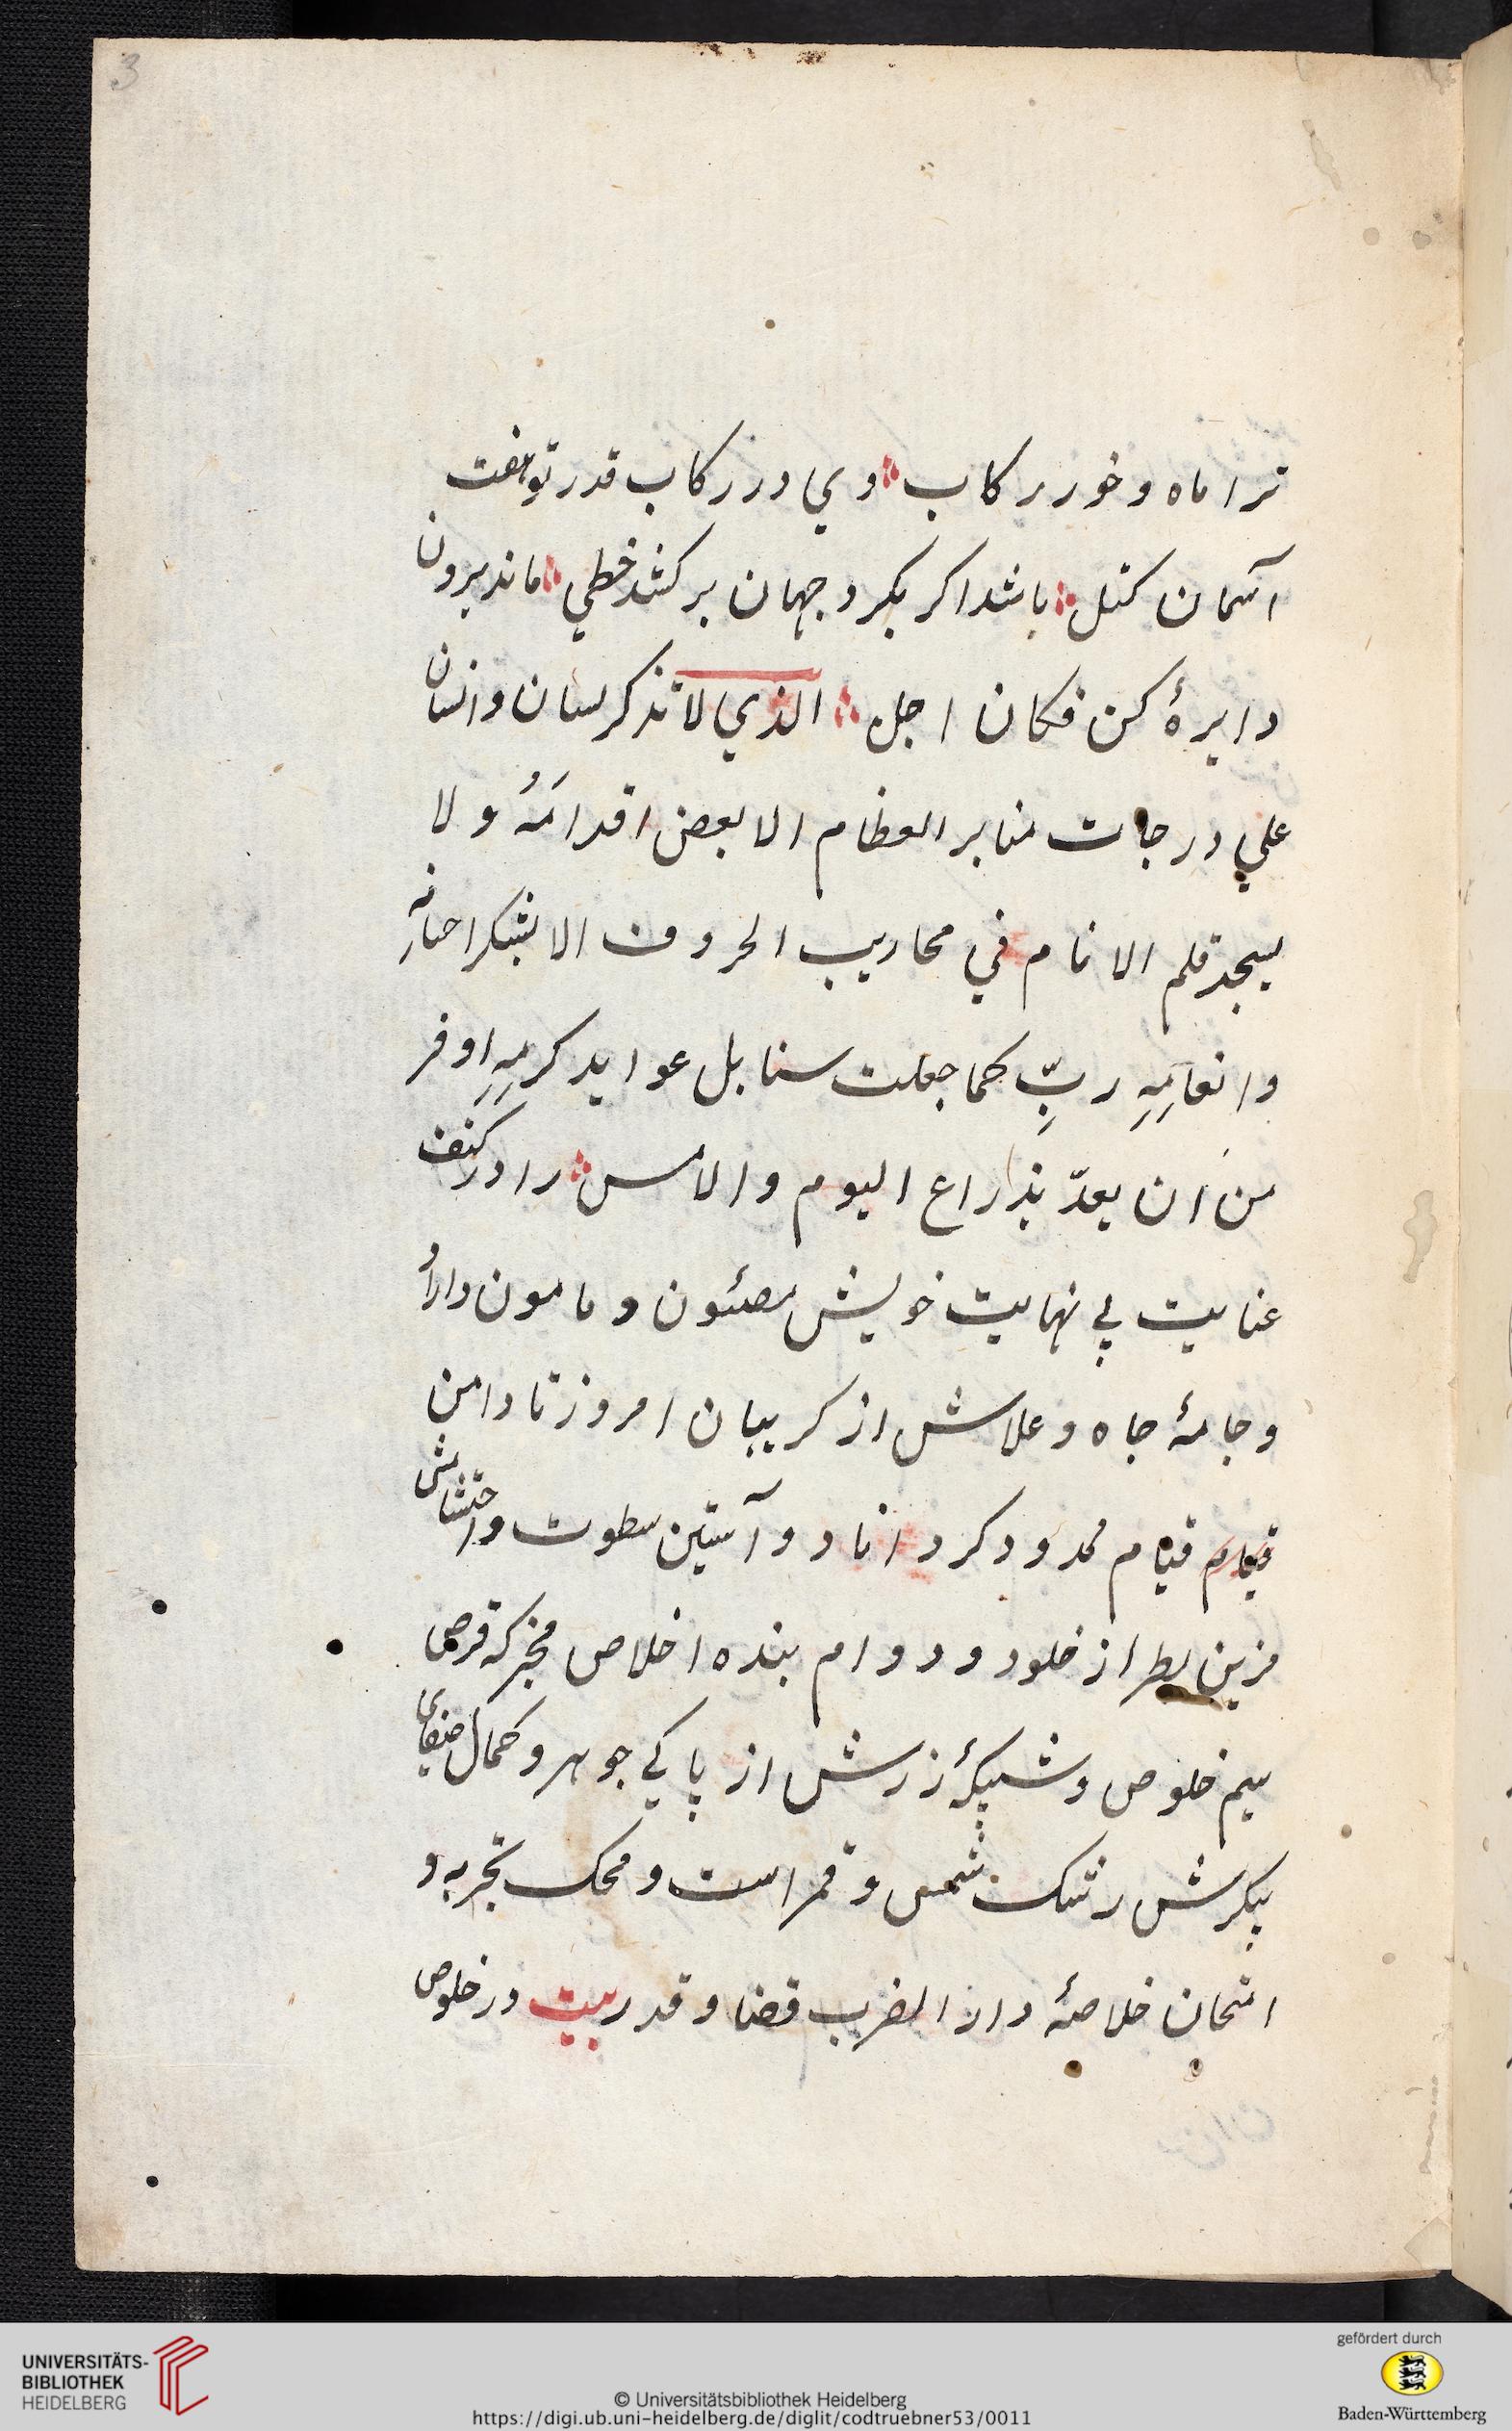 3
ترا ماه و خور رکاب وي در رکاب قدر تو هفت
آسمان کتل باشد اکر بکرد جهان برکشد خطي ماند برون
دايرۀ کن فکان اجل الذي لا تذکر لسان و انسان
علي درجات منابر العظام الا بعض اقدامَهُ و لا
يسجد قلم الانام في محاريب الحروف الا بشکر احسانهِ
و انعامِهِ ربِّ کما جعلت سنابل عوايد کرمِهِ اوفر
من ان يعدّ بذراع اليوم و الامس را در کنف
عنايت بي نهايت خويش مصئون و مامون داراد
و جامۀ جاه و علاش از کريبان امروز تا دامن
قيام محدود کرداناد و آستين سطوت و احتشامش
مزين بطراز خلود و دوام بنده اخلاص مخبر که قرص
سيم خلوص و شبيکۀ زرش از پاکي جوهر و کمال صفاي
پيکرش رشک شمس و قمر است و محک تجربه و
امتحان خلاصۀ دار الضرب قضا و قدر بيت در خلوص
UNIVERSITÄTS-
BIBLIOTHEK
HEIDELBERG
© Universitätsbibliothek Heidelberg
https://digi.ub.uni-heidelberg.de/diglit/codtruebner53/0011
gefördert durch
Baden-Württemberg